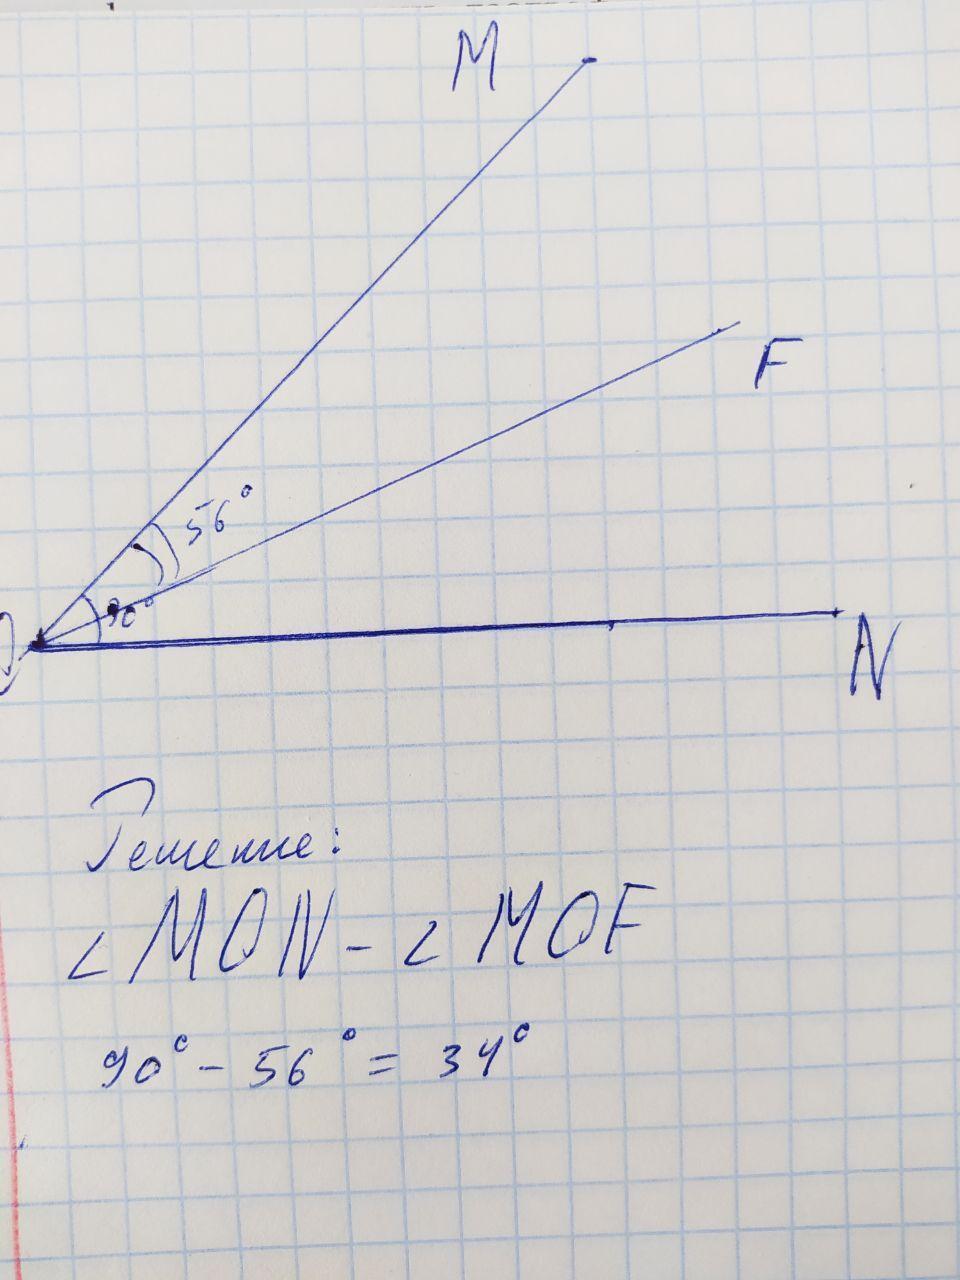 M
F
56°
90°
O
N
Решение:
∠MON - ∠MOF
90° - 56° = 34°